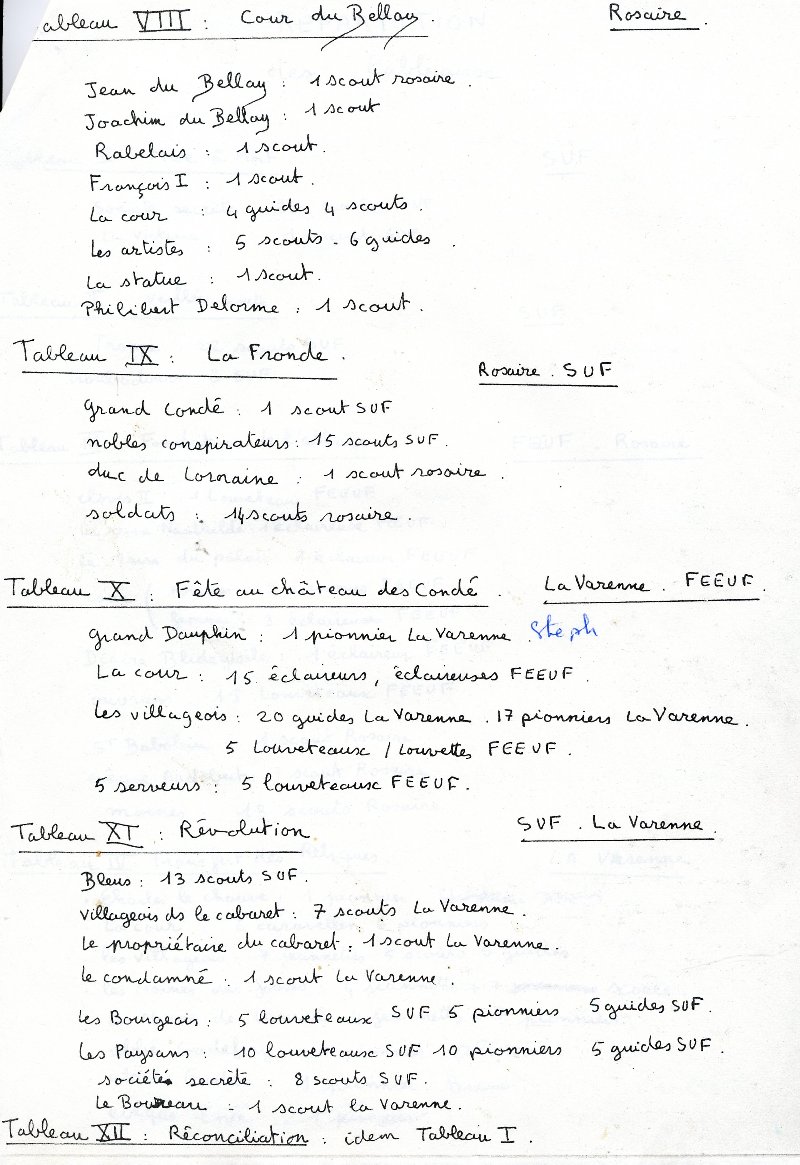 Tableau VIII : Cour du Bellay. Rosaire.
Jean du Bellay : 1 scout rosaire.
Joachim du Bellay : 1 scout
Rabelais : 1 scout.
François I : 1 scout.
La cour : 4 guides 4 scouts.
Les artistes : 5 scouts - 6 guides.
La statue : 1 scout.
Philibert Delorme : 1 scout.
Tableau IX : La Fronde. Rosaire. SUF
Grand Condé : 1 scout SUF
nobles conspirateurs : 15 scouts SUF.
duc de Lorraine : 1 scout rosaire.
soldats : 14 scouts rosaire
Tableau X : Fête au château des Condé. La Varenne. FEEUF.
Grand Dauphin : 1 pionnier La Varenne. Steph
La cour : 15 éclaireurs, éclaireuses FEEUF.
Les villageois : 20 guides La Varenne. 17 pionniers La Varenne.
5 Louveteaux / Louvettes FEEUF.
5 serveurs : 5 louveteaux FEEUF.
Tableau XI : Révolution. SUF. La Varenne.
Bleus : 13 scouts SUF.
Villageois ds le cabaret : 7 scouts La Varenne.
Le propriétaire du cabaret : 1 scout La Varenne.
Le condamné : 1 scout La Varenne.
Les Bourgeois : 5 louveteaux SUF 5 pionniers 5 guides SUF.
Les Paysans : 10 louveteaux SUF 10 pionniers 5 guides SUF.
société secrète : 8 scouts SUF.
Le Bourreau - 1 scout la Varenne.
Tableau XII : Réconciliation : idem Tableau I.